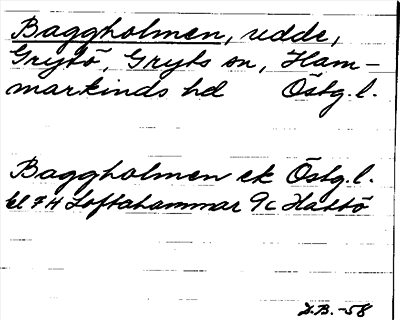 Baggholmen, udde,
Grytö, Gryts sn, Ham-
markinds hd Östg. l.
Baggholmen ek Östg. l.
bl 7H Loftahammar 9c Hattö
D.B. -58